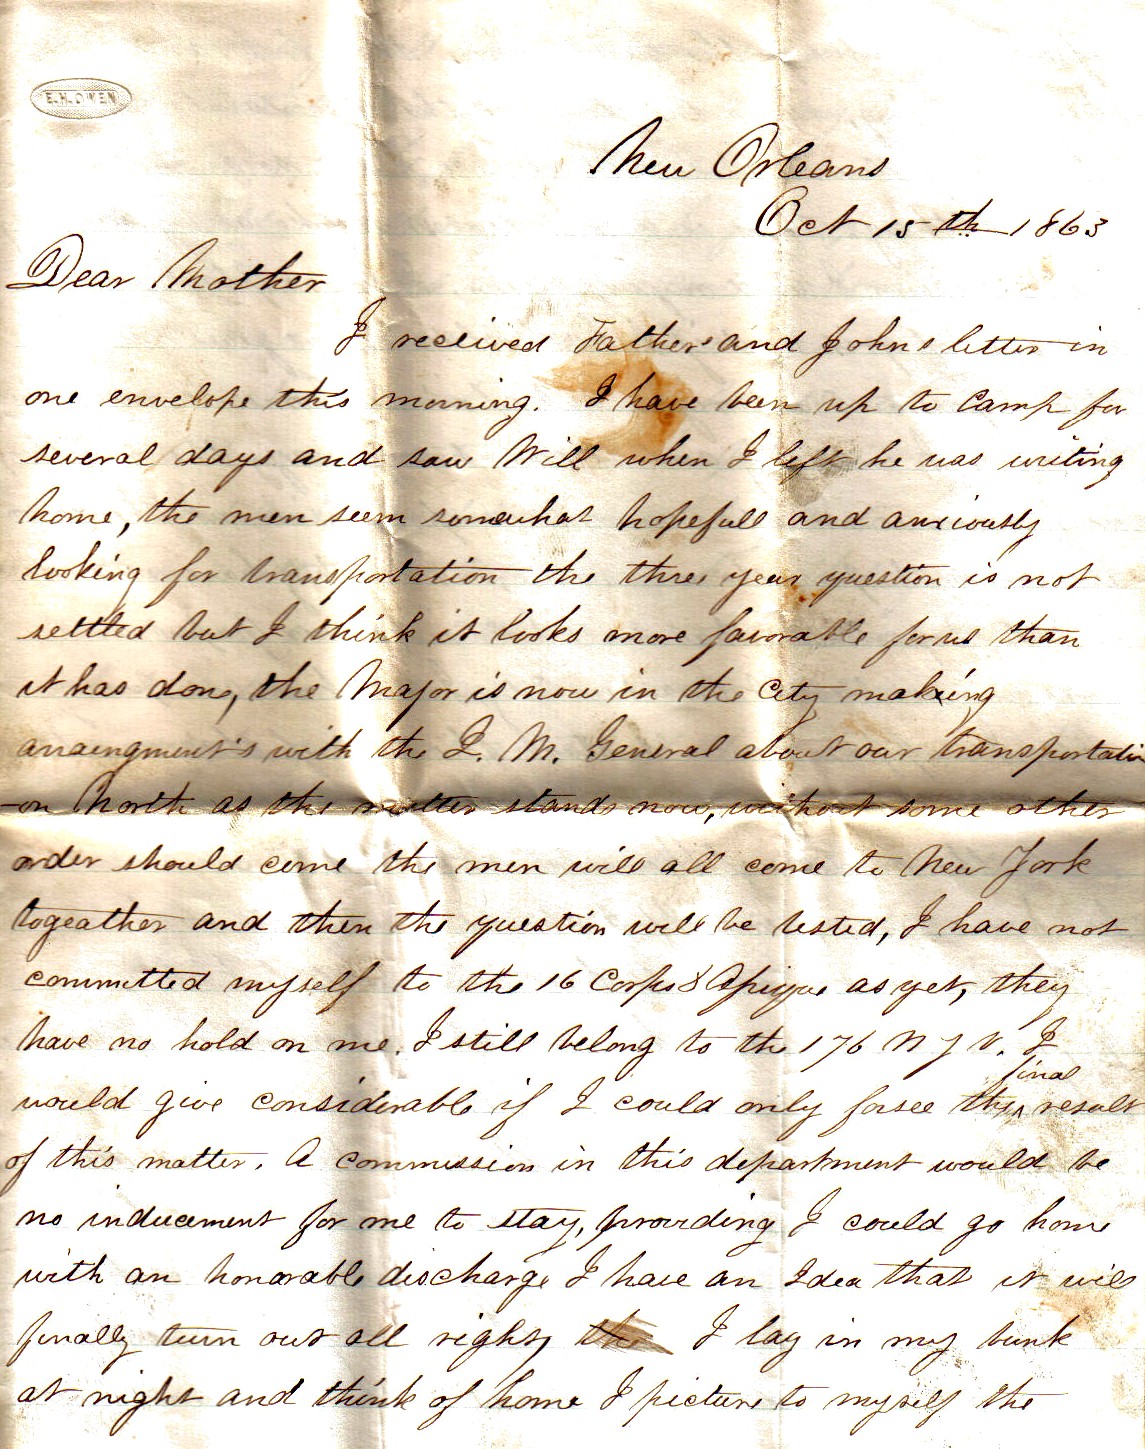 E.H.OWEN
New Orleans
Oct 15th 1863
Dear Mother
I received Father's and Johns letter in
one envelope this morning. I have been up to Camp for
several days and saw Will when I left he was writing
home, the men seem somewhat hopefull and anxiously
looking for transportation the three year question is not
settled but I think it looks more favorable for us than
it has done, the Major is now in the City making
arraengment's with the Q. M. General about our transportati
-on North as the matter stands now, without some other
order should come the men will all come to New York
togeather and then the question will be tested, I have not
committed myself to the 16 Corps as yet, they
have no hold on me. I still belong to the 176 N Y V. I
would give considerable if I could only forsee the final result
of this matter. A commission in this department would be
no inducement for me to stay, providing I could go home
with an honorable discharge I have an Idea that it will
finally turn out all right, the I lay in my bunk
at night and think of home I picture to myself the